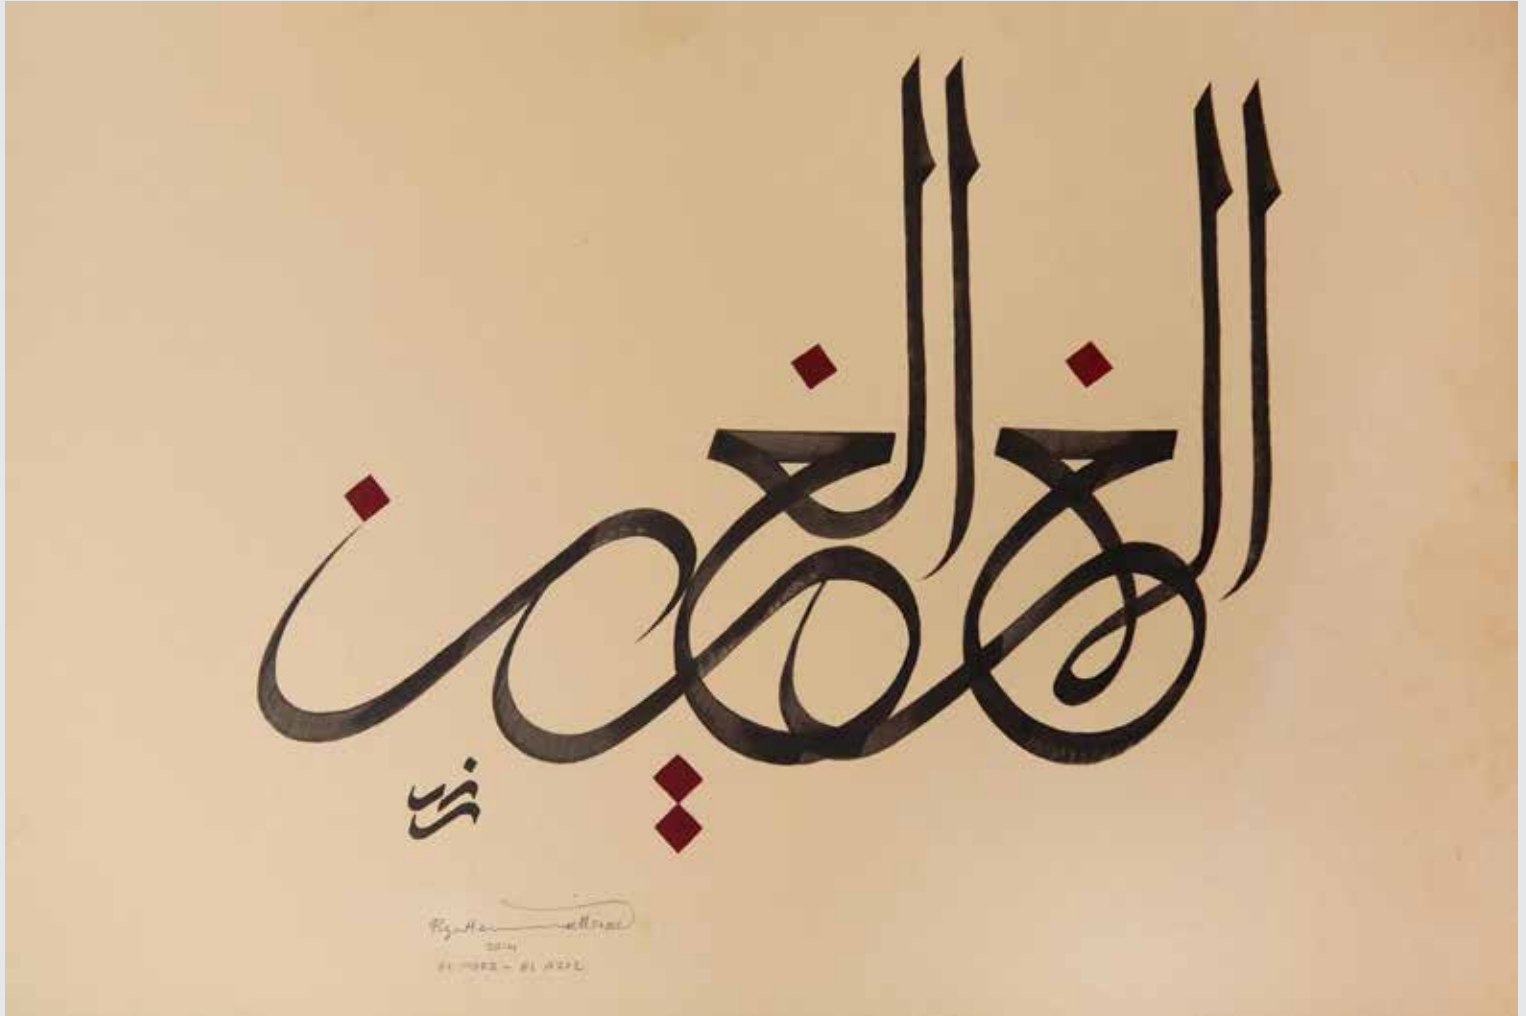 المعز العزيز
2014
EL MOEZ - EL AZIZ